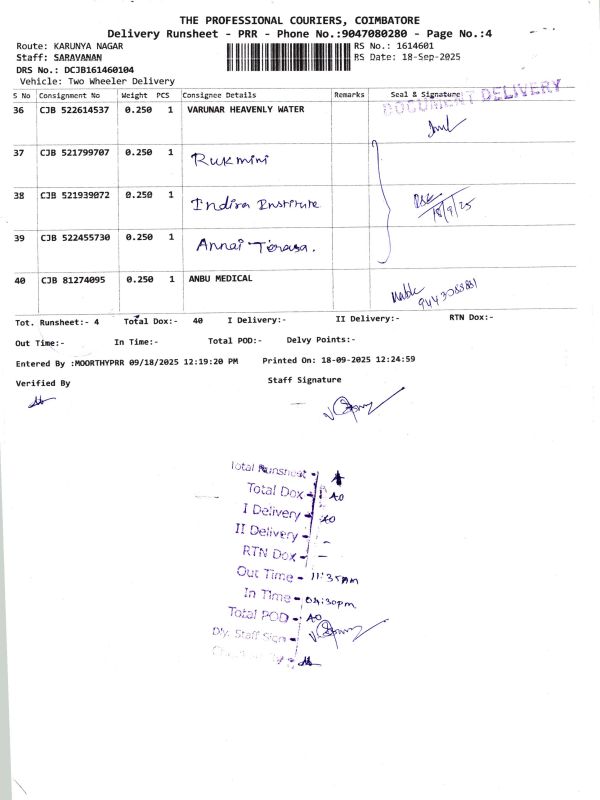 THE PROFESSIONAL COURIERS, COIMBATORE
Delivery Runsheet - PRR - Phone No.:9047080280 - Page No.:4
Route: KARUNYA NAGAR
RS No.: 1614601
Staff: SARAVANAN
RS Date: 18-Sep-2025
DRS No.: DCJB161460104
Vehicle: Two Wheeler Delivery
DOCUMENT DELIVERY
S No Consignment No Weight PCS Consignee Details Remarks Seal & Signature
36 CJB 522614537 0.250 1 VARUNAR HEAVENLY WATER
37 CJB 521799707 0.250 1 Rukmini
38 CJB 521939072 0.250 1 Indira Institute 18/9/25
39 CJB 522455730 0.250 1 Annai Terasa.
40 CJB 81274095 0.250 1 ANBU MEDICAL
Tot. Runsheet:- 4 Total Dox:- 40 I Delivery:- II Delivery:- RTN Dox:-
Out Time:- In Time:- Total POD:- Delvy Points:-
Entered By :MOORTHYPRR 09/18/2025 12:19:20 PM Printed On: 18-09-2025 12:24:59
Verified By Staff Signature
Total Runsheet - 4
Total Dox - 40
I Delivery - 40
II Delivery - -
RTN Dox - -
Out Time - 11:35AM
In Time - 04:30pm
Total POD - 40
Dly. Staff Sign -